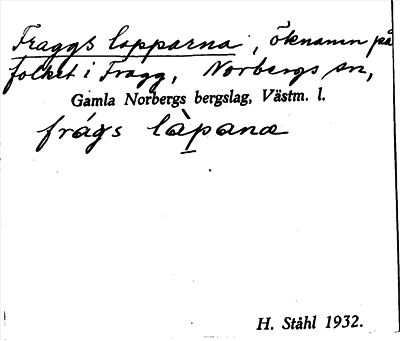 Fraggs lopparna, öknamn på
folket i Fragg, Norbergs sn,
Gamla Norbergs bergslag, Västm. l.
frágs làpana
H. Ståhl 1932.